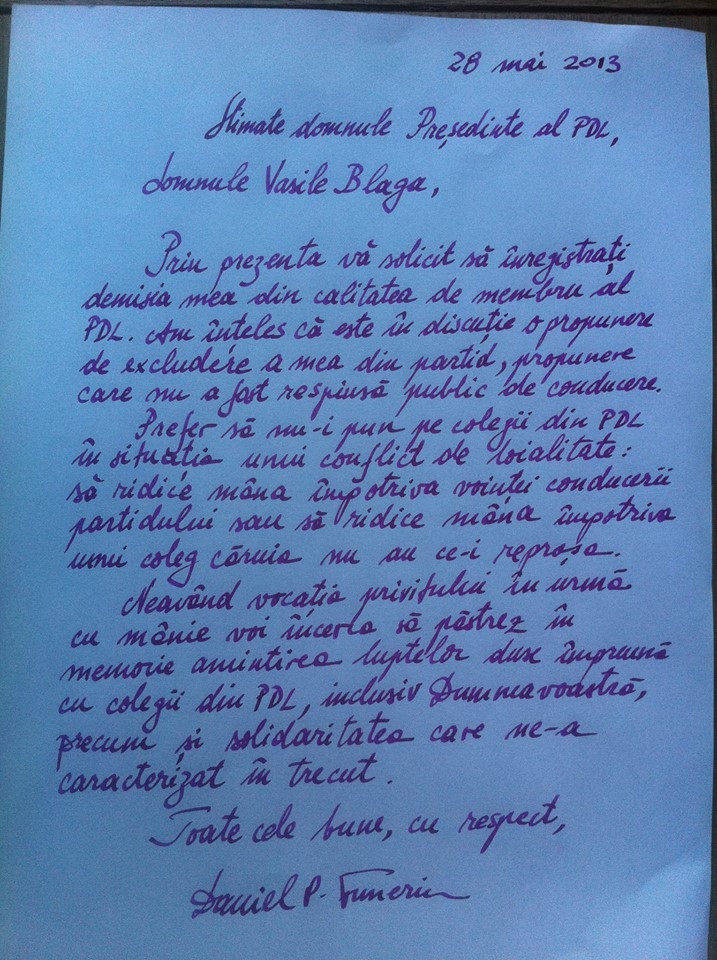 28 mai 2013
Stimate domnule Președinte al PDL,
domnule Vasile Blaga,
Prin prezenta vă solicit să înregistrați
demisia mea din calitatea de membru al
PDL. Am înțeles că este în discuție o propunere
de excludere a mea din partid, propunere
care nu a fost respinsă public de conducere.
Prefer să nu-i pun pe colegii din PDL
în situația unui conflict de loialitate:
să ridice mâna împotriva voinței conducerii
partidului sau să ridice mâna împotriva
unui coleg căruia nu au ce-i reproșa.
Neavând vocația privitului în urmă
cu mânie voi încerca să păstrez în
memorie amintirea luptelor duse împreună
cu colegii din PDL, inclusiv Dumneavoastră,
precum și solidaritatea care ne-a
caracterizat în trecut.
Toate cele bune, cu respect,
Daniel P. Funeriu